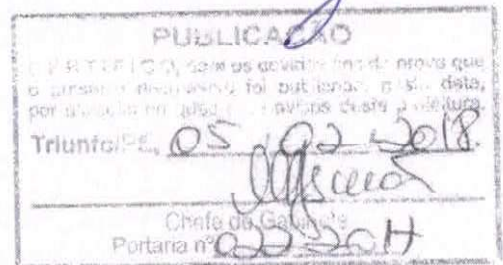 PUBLICAÇÃO
CERTIFICO, para os devidos fins de prova que
o presente documento foi publicado, nesta data,
por afixação no quadro de avisos desta Prefeitura.
Triunfo/PE, 05 . 02 . 2018.
Chefe de Gabinete
Portaria nº 022